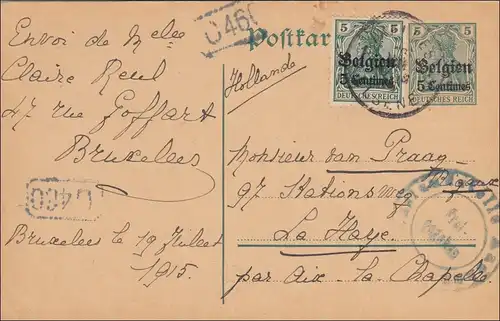 Envoi de Melle
Claire Reul
47 rue Goffart
Bruxelles
U460
Bruxelles le 19 Juillet
1915
U460
Postkar
(Hollande)
5 5
Belgien
5 Centimes
DEUTSCHES REICH
5 5
Belgien
5 Centimes
DEUTSCHES REICH
Monsieur van Praag
97 Stationsweg
La Haye
par Aix-la-Chapelle